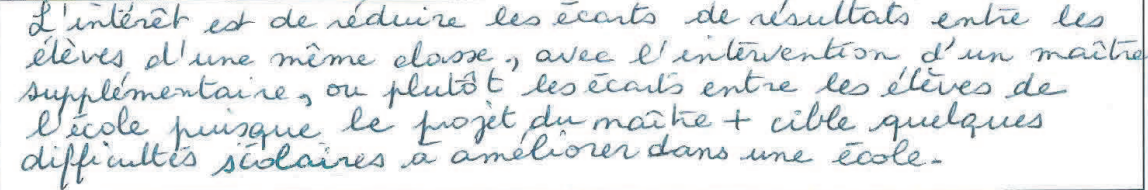 L'intérêt est de réduire les écarts de résultats entre les
élèves d'une même classe, avec l'intervention d'un maître
supplémentaire, ou plutôt les écarts entre les élèves de
l'école puisque le projet du maître + cible quelques
difficultés scolaires à améliorer dans une école.